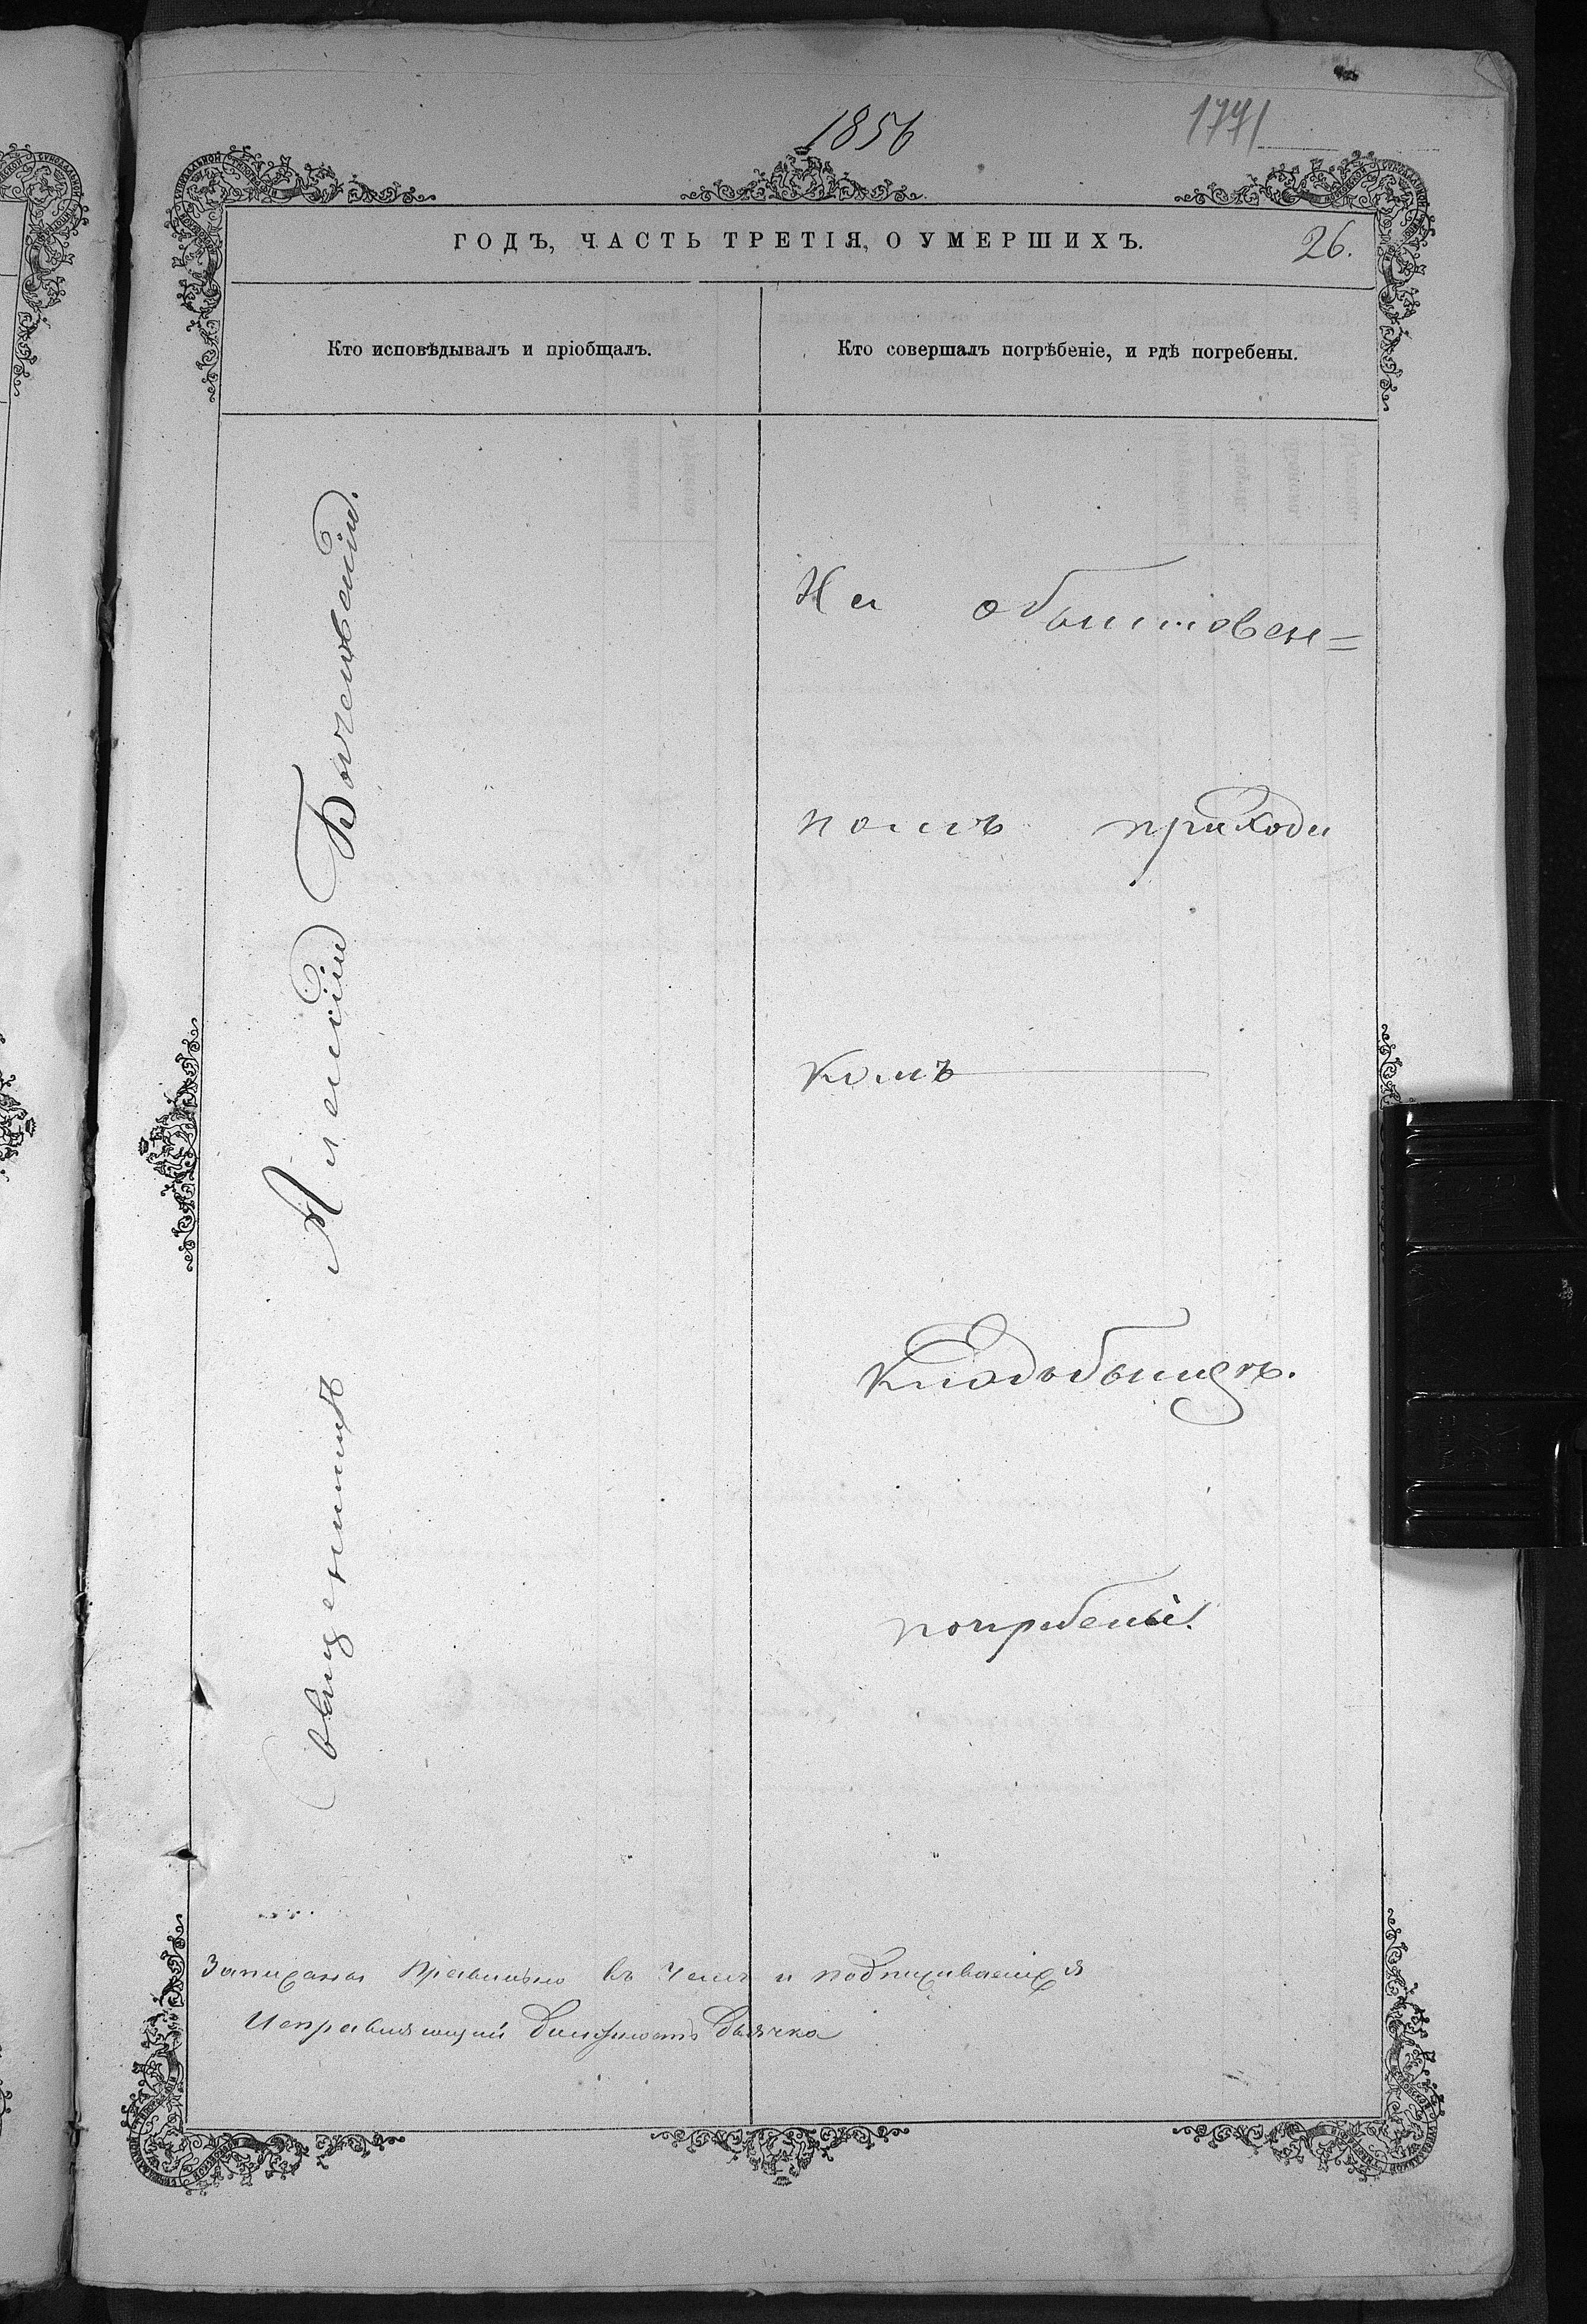 1856
1771
ГОДЪ, ЧАСТЬ ТРЕТІЯ, О УМЕРШИХЪ.
26.
Кто исповѣдывалъ и пріобщалъ.
Кто совершалъ погрѣбеніе, и гдѣ погребены.
Священникъ Алексій
На обыкновен=
номъ приход
комъ
Кладьбыщѣ.
погребены.
Записана Правильно въ чемъ и подписываемся
Исправляющій должность дьячка